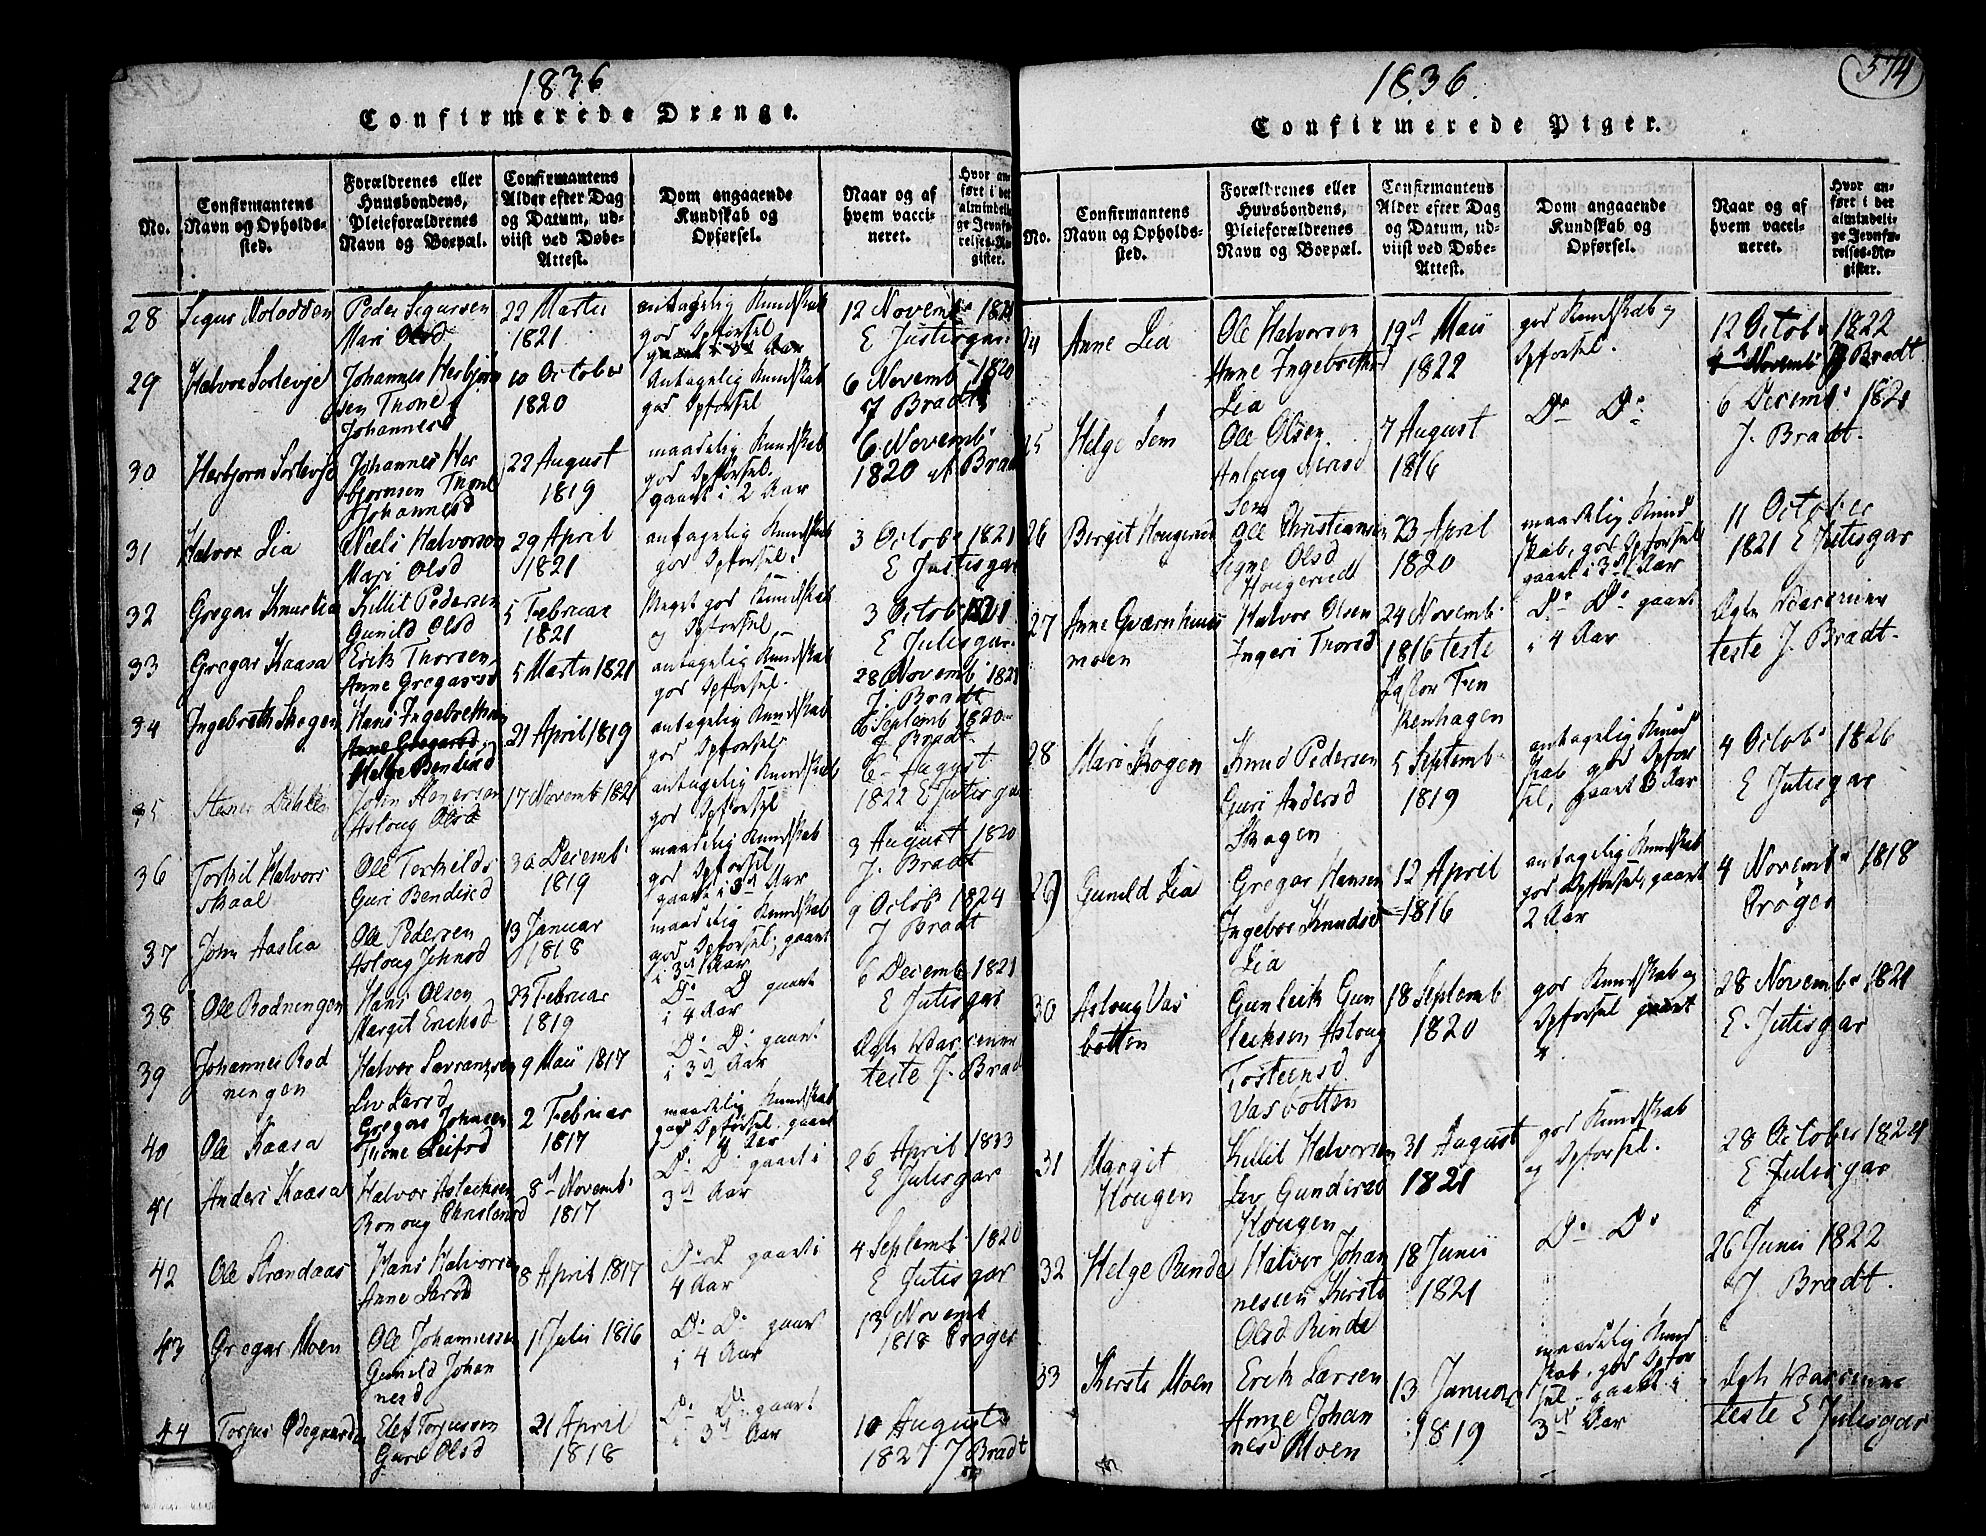 1836
Confirmerede Drenge.
No.
Confirmantens
Navn og Opholds-
sted.
Forældrenes eller
Huusbondens,
Pleieforældrenes
Navn og Boepæl.
Confirmantens
Alder efter Dag
og Datum, ud-
viist ved Døbe-
Attest.
Dom angaaende
Kundskab og
Opførsel.
Naar og af
hvem vacci-
neret.
Hvor an-
ført i det
almindeli-
ge Jevnfø-
relses-Re-
gister.
28
Peder Sigursen
Mari Olsd
22 Martii
1821
antagelig Kundskab
god Opførsel
12 Novemb 1821
E Jutisgar
29
Halvor Sorlevje
Johannes Herbjørn
sen Thone
Johannesd
10 October
1820
Antagelig Kundskab
god Opførsel
6 Novemb 1820
J Bradt
30
Herbjorn Sorlevje
Johannes Her
bjørnsen Thone
Johannesd
22 August
1819
maadelig Kundskab
god Opførsel
gaaet i 2 Aar
6 Novemb
1820 af Bradt
31
Halvor Lia
Niels Halvorsen
Mari Olsd
29 April
1821
antagelig Kundskab
god Opførsel
3 Octob 1821
E Jutisgar
32
Gregar Knustia
Killit Pedersen
Gunild Olsd
5 Februar
1821
Meget god Kundskab
og Opførsel
3 Octob 1821
E Jutisgar
33
Gregar Kaasa
Erik Thorsen
Anne Gregarsd
5 Martii 1821
antagelig Kundskab
god Opførsel
28 Novemb 1821
J. Bradt
34
Ingebreth Skogen
Hans Ingebrethsen
Anne Gregarsd
Helge Bendixd
21 April 1819
antagelig Kundskab
god Opførsel
6 Septemb 1820
J Bradt
35
John
Asloug Olsd
17 Novemb 1821
antagelig Kundskab
god Opførsel
6 August
1822 E Jutisgar
36
Torkil Halvors
skaal
Ole Terkelds
Guri Bendixd
30 Decemb
1819
maadelig Kundskab
god Opførsel
gaaet i 3d Aar
3 August 1820
J. Bradt
37
John Aaslia
Ole Pedersen
Asloug Johnsd
13 Januar
1818
maadelig Kundskab
god Opførsel, gaaet
i 3d Aar
9 Octob 1824
J Bradt
38
Ole Bodningen
Hans Olsen
Margit Ericksd
23 Februar
1819
Do Do gaaet
i 4 Aar
6 Decemb 1821
E Jutisgar
39
Johannes Bod
ningen
Halvor Lavrantzsen
Liv Larsd
9 Maii 1817
Do Do gaaet
i 3d Aar
teste J. Bradt
40
Ole Kaasa
Gregar Johnsen
Thone Leifsd
2 Februar
1817
maadelig Kundskab
god Opførsel, gaaet
i 4 Aar
26 April 1833
E Jutisgar
41
Anders Kaasa
Halvor Aslecksen
8d Novemb
1817
Do Do gaaet i
3d Aar
42
Ole Strandaas
Hans Halvorsen
Anne Larsd
8 April 1817
Do Do gaaet i
4 Aar
4 Septemb 1820
E Jutisgar
43
Gregar Moen
Ole Johannessen
Gunild Johan
nesd
1 Julii 1816
Do Do gaaet
i 4 Aar
13 Novemb
1818 Crøger
44
Torjus Ødegaarden
Elef Torjussen
Guro Olsd
21 April
1818
Do Do gaaet
i 3d Aar
10 August
1827 J Bradt
1836.
574
Confirmerede Piger.
No.
Confirmantens
Navn og Opholds-
sted.
Forældrenes eller
Huusbondens,
Pleieforældrenes
Navn og Boepæl.
Confirmantens
Alder efter Dag
og Datum, ud-
viist ved Døbe-
Attest.
Dom angaaende
Kundskab og
Opførsel.
Naar og af
hvem vacci-
neret.
Hvor an-
ført i det
almindeli-
ge Jevnfø-
relses-Re-
gister.
24
Anne Lia
Ole Halvorsen
Anne Ingebrethsd
Lia
19d Maii
1822
god Kundskab og
Opførsel.
12 Octob 1822
J Bradt
25
Helge Sem
Ole Olsen
Asloug Nirisd
Sem
7 August
1816
Do Do
6 Decemb 1821
J. Bradt.
26
Birgit Hougerud
Ole Christiansen
Signe Olsd
Hougerud
23 April
1820
maadelig Kund
skab, god Opførsel
gaaet i 3d Aar
11 October
1821 E Jutisgar
27
Anne Qværnhuus
moen
Halvor Olsen
Ingeri Thorsd
24 Novemb
1816 teste
Pastor Fen
kenhagen
Do Do gaaet
i 4 Aar
teste J. Bradt
28
Mari Skogen
Knud Pedersen
Guri Andersd
Skogen
5 Septemb
1819
antagelig Kund
skab god Opfør
sel, gaaet 3 Aar
4 Octob 1826
E Jutisgar
29
Gunild Lia
Gregar Hansen
Ingebor Knudsd
Lia
12 April
1816
antagelig Kundskab
god Opførsel, gaaet
2 Aar
4 Novemb 1818
Crøger
30
Asloug Vas
botten
Gunleik Gun
leiksen Asloug
Tosteensd
Vasbotten
18 Septemb
1820
god Kundskab og
Opførsel gaaet
28 Novemb 1821
E. Jutisgar
31
Margit
Hougen
Killit Halvorsen
Liv Gundersd
Hougen
31 August
1821
god Kundskab
og Opførsel.
28 October 1824
E Jutisgar
32
Helge Rinde
Halvor Johan
nesen Kirste
Olsd Rinde
18 Junii
1821
Do Do
26 Junii 1822
J. Bradt.
33
Kirste Moen
Erik Larsen
Anne Johan
nesd Moen
13 Januar
1819
maadelig Kund
skab, god Opfør
sel gaaet i
3d Aar
teste E Jutisgar